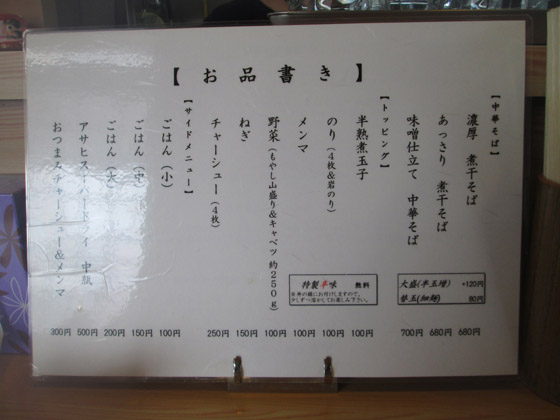 【お品書き】
【中華そば】
濃厚 煮干そば 680円
あっさり 煮干そば 680円
味噌仕立て 中華そば 700円
大盛(半玉増) +120円
替玉(細麺) 80円
【トッピング】
半熟煮玉子 100円
のり(4枚&岩のり) 100円
メンマ 100円
野菜(もやし山盛り&キャベツ 約250g) 100円
ねぎ 150円
チャーシュー(4枚) 250円
特製辛味 無料
【サイドメニュー】
ごはん(小) 100円
ごはん(中) 150円
ごはん(大) 200円
アサヒスーパードライ 中瓶 500円
おつまみチャーシュー&メンマ 300円